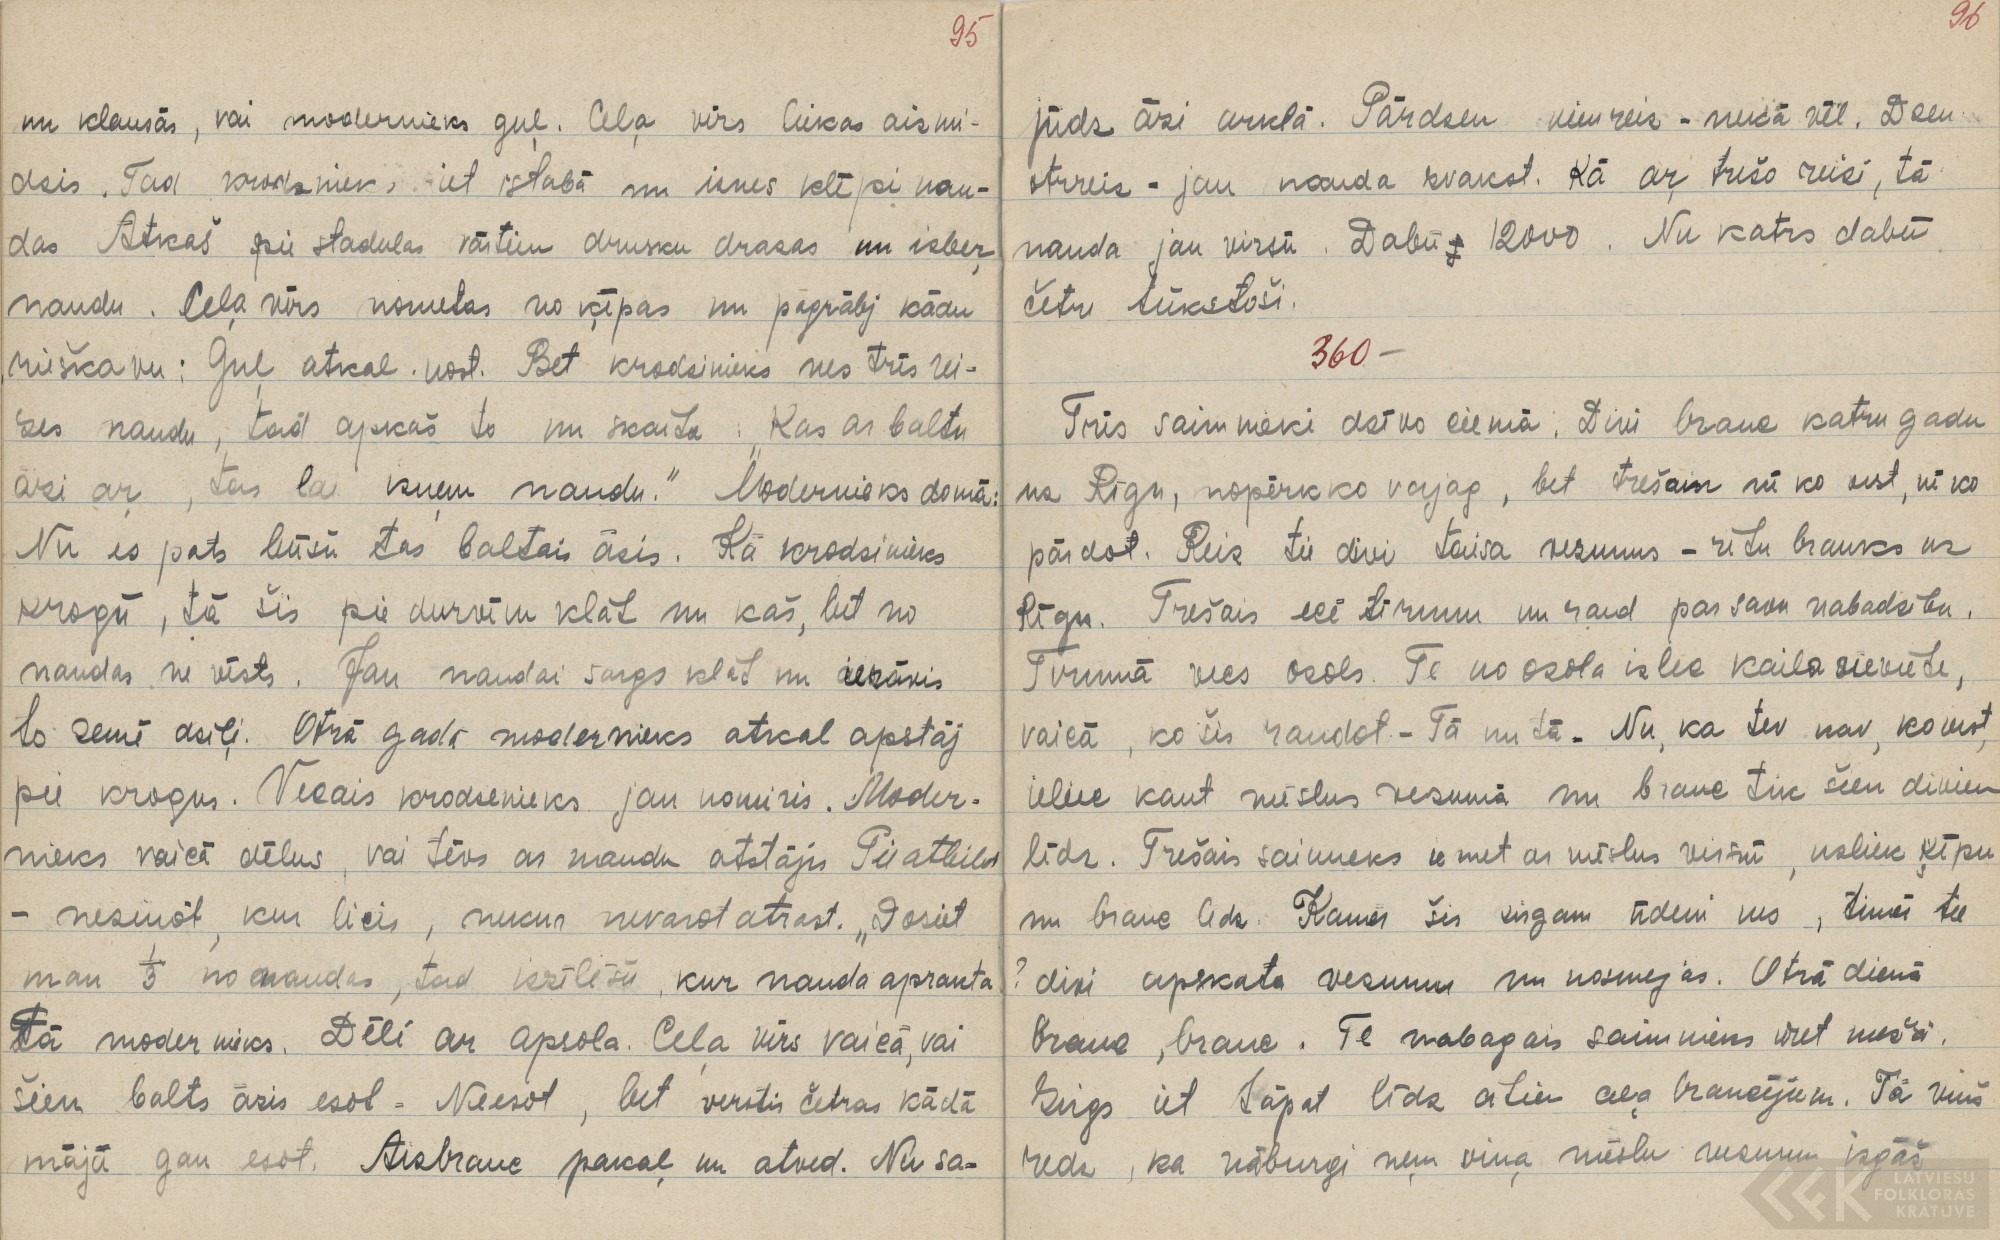 95
un klausās, vai modernieks guļ. Ceļa vīrs liekas aizmi-
dsis. Tad krodznieks iet istabā un isnes klēpi nau-
das Atkaš pie stadulas vārtiem drusku drazas un isber
naudu. Ceļa vīrs nometas no ķīpas un pagrābj kādu
riešķavu: Guļ atkal nost. Bet krodsinieks nes trīs rei-
zes naudu, tad apkaš to un skaita: „Kas ar baltu
āzi aŗ, tas lai izņem naudu." Modernieks domā:
Nu es pats būšu tas baltais āzis. Kā krodsinieks
krogū, tā šis pie durvīm klāt un kaš, bet no
naudas ne vēsts. Jau naudai sargs klāt un ierāvis
to zemē dziļi. Otrā gadā modernieks atkal apstāj
pie krogus. Vecais krodsenieks jau nomiris. Moder-
nieks vaicā dēlus, vai tēvs ar naudu atstājis Tie atbild
- nezinot, kur licis, nekur nevarot atrast. „Dosiet
man 1/3 no naudas, tad izzīlēšu, kur nauda aprakta
Tā modernieks. Dēli ar apsola. Ceļa vīrs vaicā, vai
šiem balts āzis esot - Neesot, bet verstis četras kādā
mājā gan esot. Aizbrauc pakaļ un atved. Nu sa-
96
jūdz āzi arklā. Pārdsen vienreiz - nekā vēl. Dsen
otrreiz - jau nauda zvakst. Kā aŗ trešo reizi, tā
nauda jau virsū. Dabū 12000. Nu katrs dabū
četri tūkstoši.
360 -
Trīs saimnieki dzīvo ciemā. Divi brauc katru gadu
uz Rīgu, nopērk ko vajag, bet trešam ni ko vest, ni ko
pārdot. Reiz tie divi taisa vezumus - rītu brauks uz
Rīgu. Trešais ecē tīrumu un raud par savu nabadzību.
Tīrumā vecs ozols. Te no ozola izlec kaila sieviete,
vaicā, ko šis raudot - Tā un tā - Nu, ka tev nav, ko vest,
ieliec kaut mēslus vezumā un brauc tik šiem diviem
līdz. Trešais saimnieks iemet ar mēslus virsū, uzliek ķīpu
un brauc līdz. Kamēr šis zirgam ūdeni nes, timēr tie
? divi apskata vezumu un nosmejas. Otrā dienā
brauc, brauc. Te nabagais saimnieks iet mežā.
Zirgs iet tāpat līdz citiem ceļa braucējiem. Tā viņš
redz, ka nāburgi ņem viņa mēslu vezumu izgāž
LATVIEŠU
FOLKLORAS
KRĀTUVE